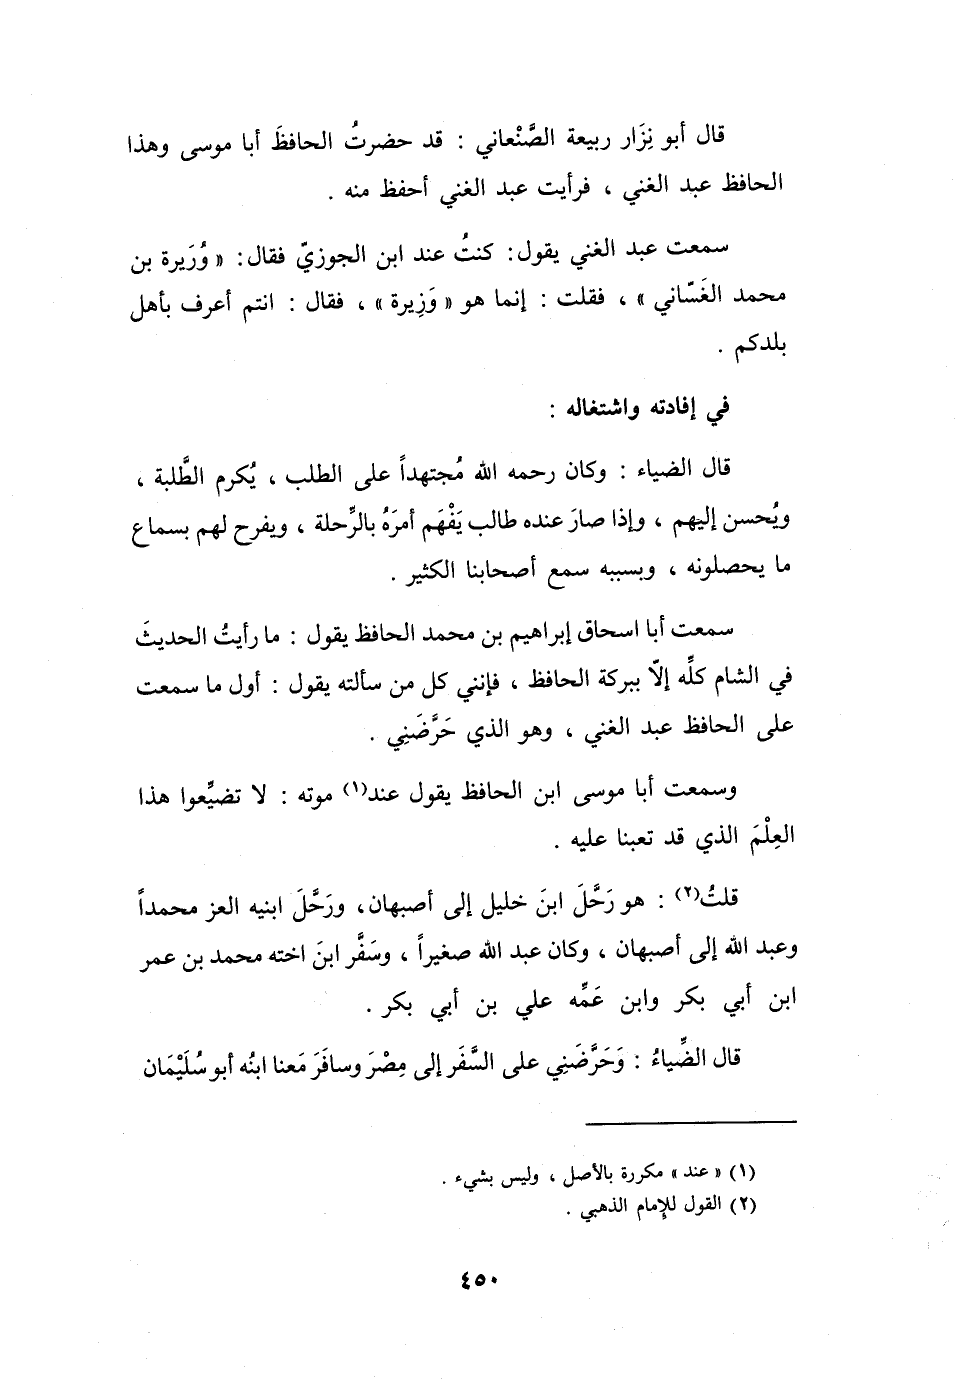 قال أبو نِزَار ربيعة الصَّنْعاني : قد حضرتُ الحافظَ أبا موسى وهذا
الحافظ عبد الغني ، فرأيت عبد الغني أحفظ منه .
سمعت عبد الغني يقول: كنتُ عند ابن الجوزيّ فقال: « وُرَيرة بن
محمد الغَسّاني » ، فقلت : إنما هو « وَزِيرة » ، فقال : انتم أعرف بأهل
بلدكم .
في إفادته واشتغاله :
قال الضياء : وكان رحمه الله مُجتهداً على الطلب ، يُكرم الطَّلبة ،
ويُحسن إليهم ، وإذا صارَ عنده طالب يَفْهَم أمرَهُ بالرِّحلة ، ويفرح لهم بسماع
ما يحصلونه ، وبسببه سمع أصحابنا الكثير .
سمعت أبا اسحاق إبراهيم بن محمد الحافظ يقول : ما رأيتُ الحديثَ
في الشام كلِّه إلاّ ببركة الحافظ ، فإنني كل من سألته يقول : أول ما سمعت
على الحافظ عبد الغني ، وهو الذي حَرَّضَنِي .
وسمعت أبا موسى ابن الحافظ يقول عند(١) موته : لا تضيِّعوا هذا
العِلْمَ الذي قد تعبنا عليه .
قلتُ(٢) : هو رَحَّلَ ابنَ خليل إلى أصبهان، ورَحَّلَ ابنيه العز محمداً
وعبد الله إلى أصبهان ، وكان عبد الله صغيراً ، وسَفَّر ابنَ اخته محمد بن عمر
ابن أبي بكر وابن عَمِّه علي بن أبي بكر .
قال الضِّياءُ : وَحَرَّضَنِي على السَّفَر إلى مِصْرَ وسافَرَ مَعنا ابنُه أبو سُلَيْمَان
(١) « عند » مكررة بالأصل ، وليس بشيء .
(٢) القول للإمام الذهبي .
٤٥٠